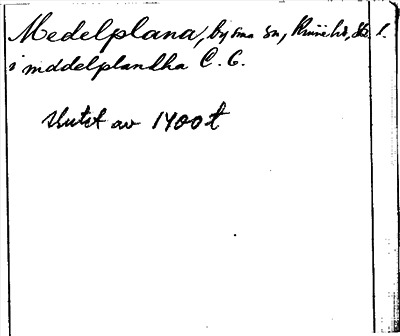 Medelplana, by sma sn, Kinneh's, Sk. l.
i mddelplandha C. G.
slutet av 1400 t